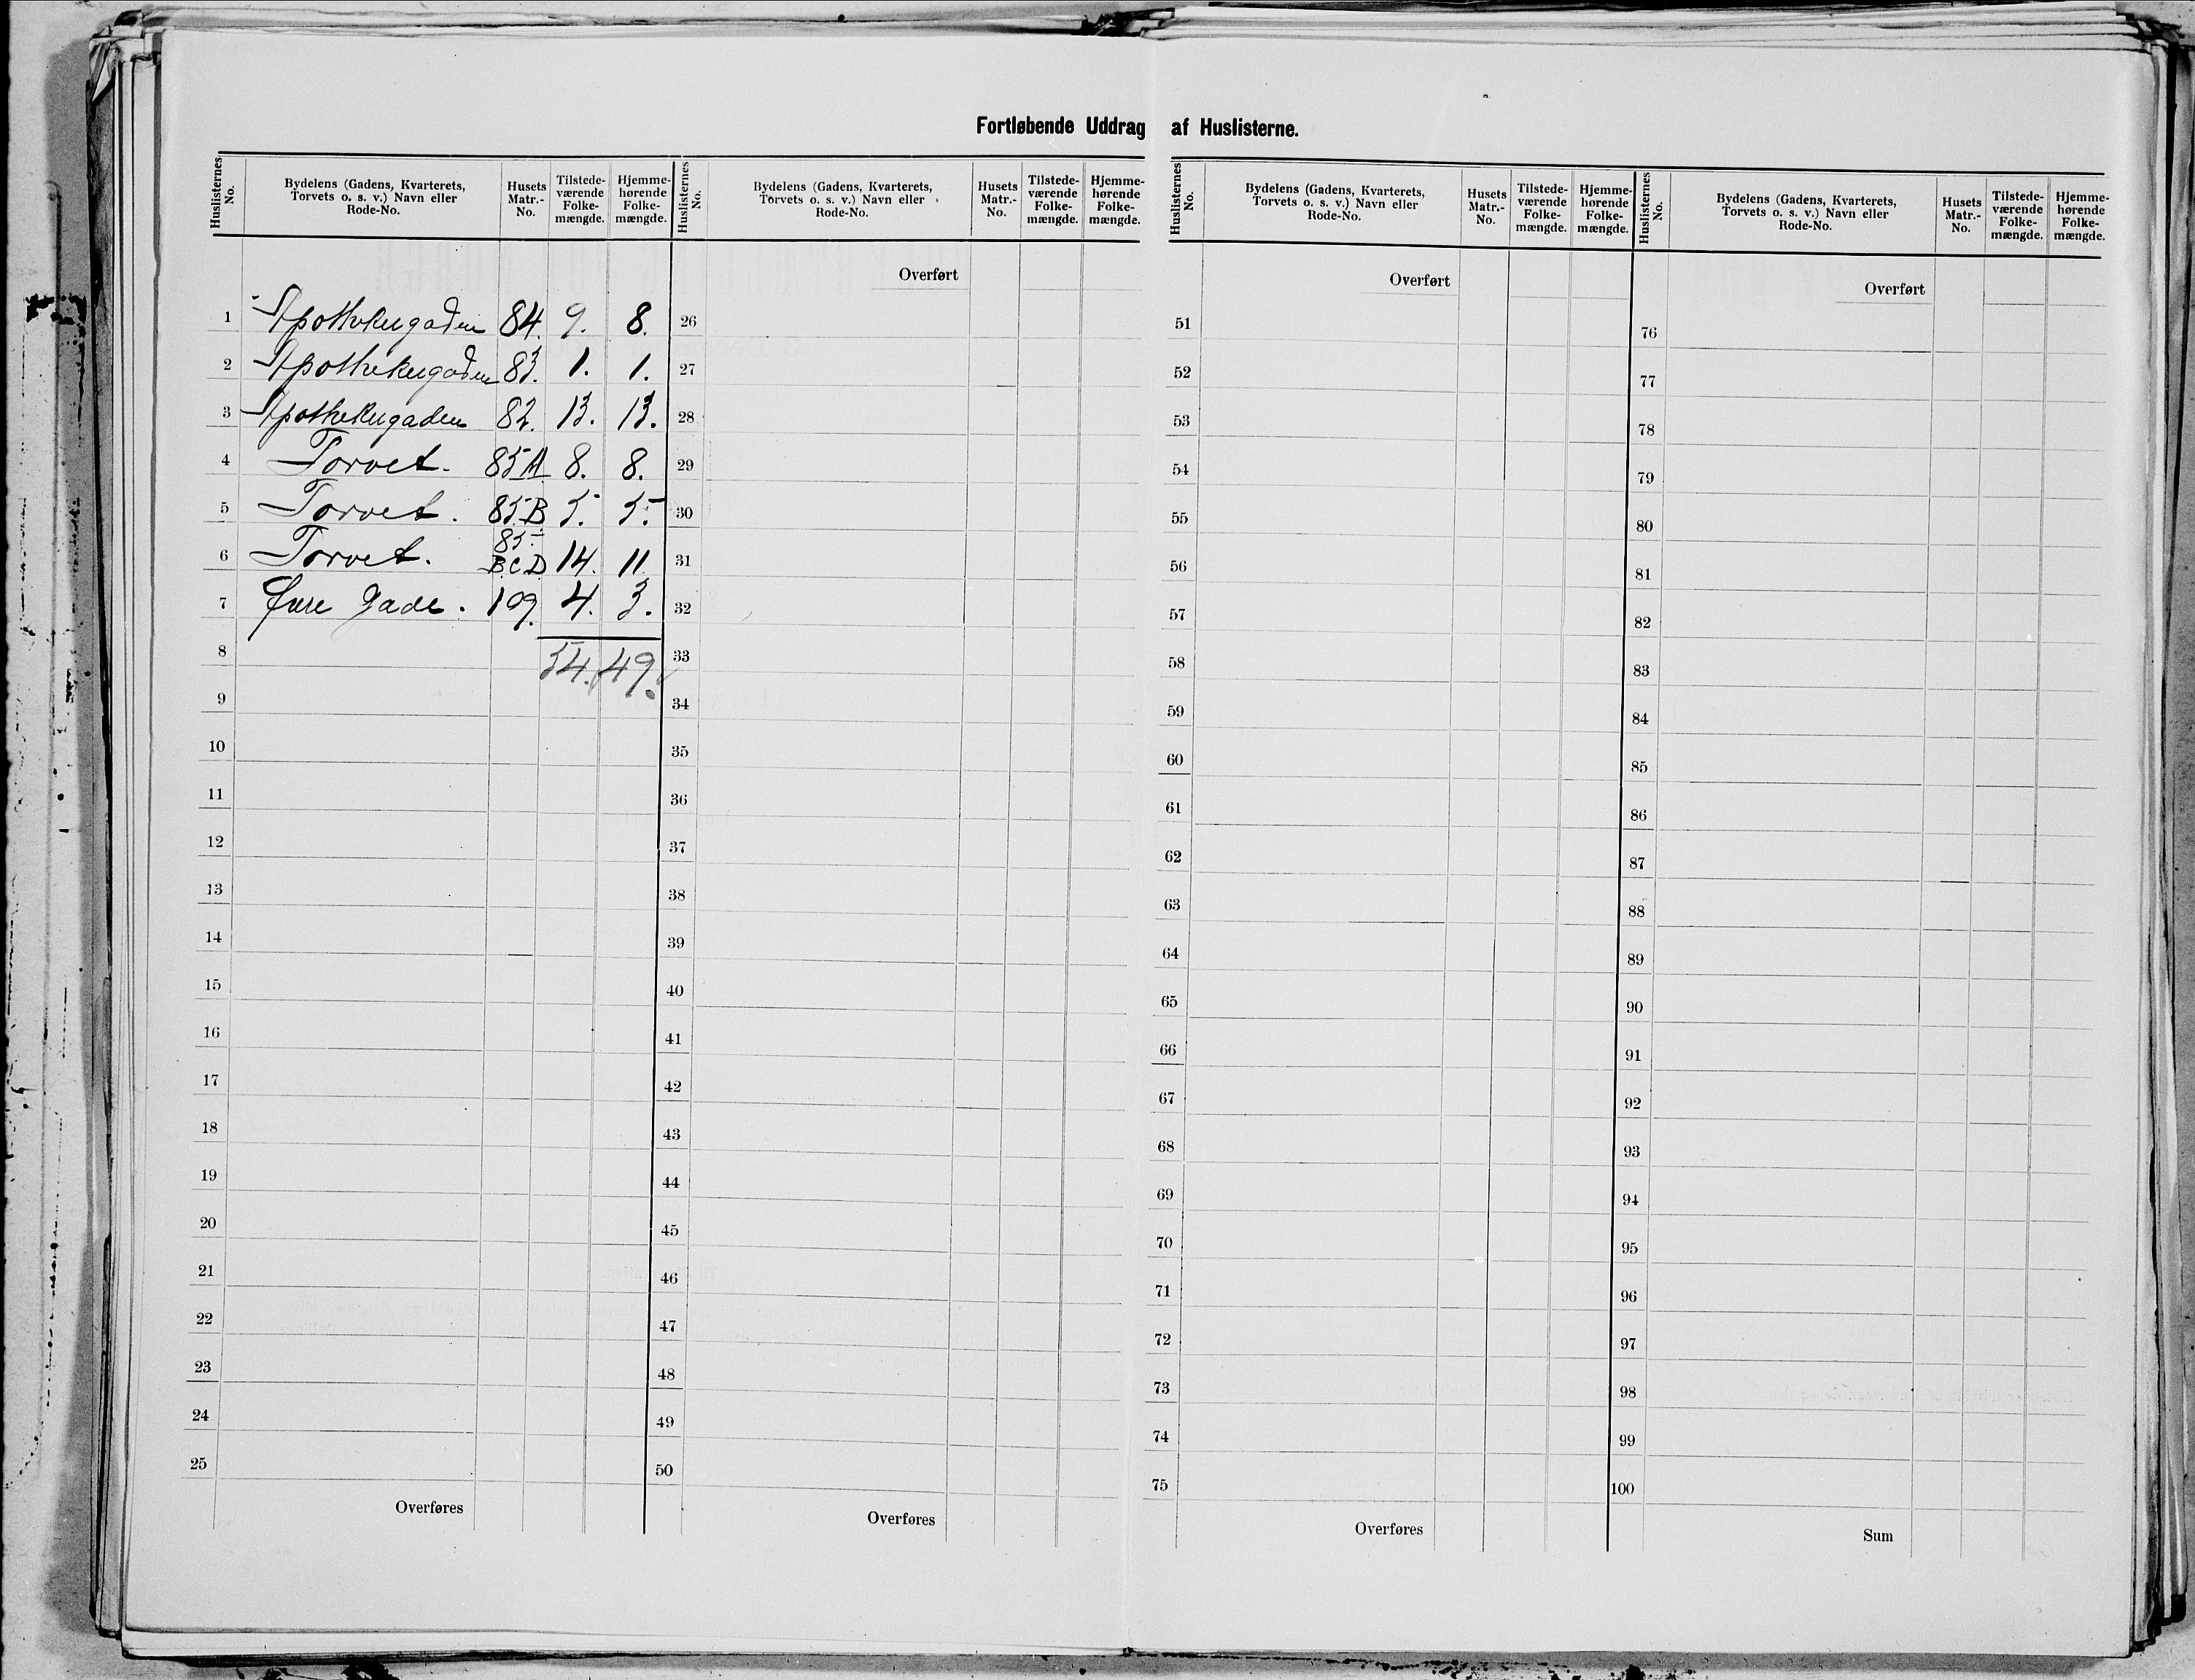 Fortløbende Uddrag af Huslisterne.
Huslisternes No. Bydelens (Gadens, Kvarterets, Torvets o. s. v.) Navn eller Rode-No. Husets Matr.-No. Tilstede-værende Folke-mængde. Hjemme-hørende Folke-mængde.
1 Apothekergaden 84. 9. 8.
2 Apothekergaden 83. 1. 1.
3 Apothekergaden 82. 13. 13.
4 Torvet. 85A 8. 8.
5 Torvet. 85B 5. 5.
6 Torvet. 85 B.C.D 14. 11
7 Øvre Gade. 109. 4. 3.
8 54. 49.
9
10
11
12
13
14
15
16
17
18
19
20
21
22
23
24
25
Overføres
Huslisternes No. Bydelens (Gadens, Kvarterets, Torvets o. s. v.) Navn eller Rode-No. Husets Matr.-No. Tilstede-værende Folke-mængde. Hjemme-hørende Folke-mængde.
Overført
26
27
28
29
30
31
32
33
34
35
36
37
38
39
40
41
42
43
44
45
46
47
48
49
50
Overføres
Huslisternes No. Bydelens (Gadens, Kvarterets, Torvets o. s. v.) Navn eller Rode-No. Husets Matr.-No. Tilstede-værende Folke-mængde. Hjemme-hørende Folke-mængde.
Overført
51
52
53
54
55
56
57
58
59
60
61
62
63
64
65
66
67
68
69
70
71
72
73
74
75
Overføres
Huslisternes No. Bydelens (Gadens, Kvarterets, Torvets o. s. v.) Navn eller Rode-No. Husets Matr.-No. Tilstede-værende Folke-mængde. Hjemme-hørende Folke-mængde.
Overført
76
77
78
79
80
81
82
83
84
85
86
87
88
89
90
91
92
93
94
95
96
97
98
99
100
Sum